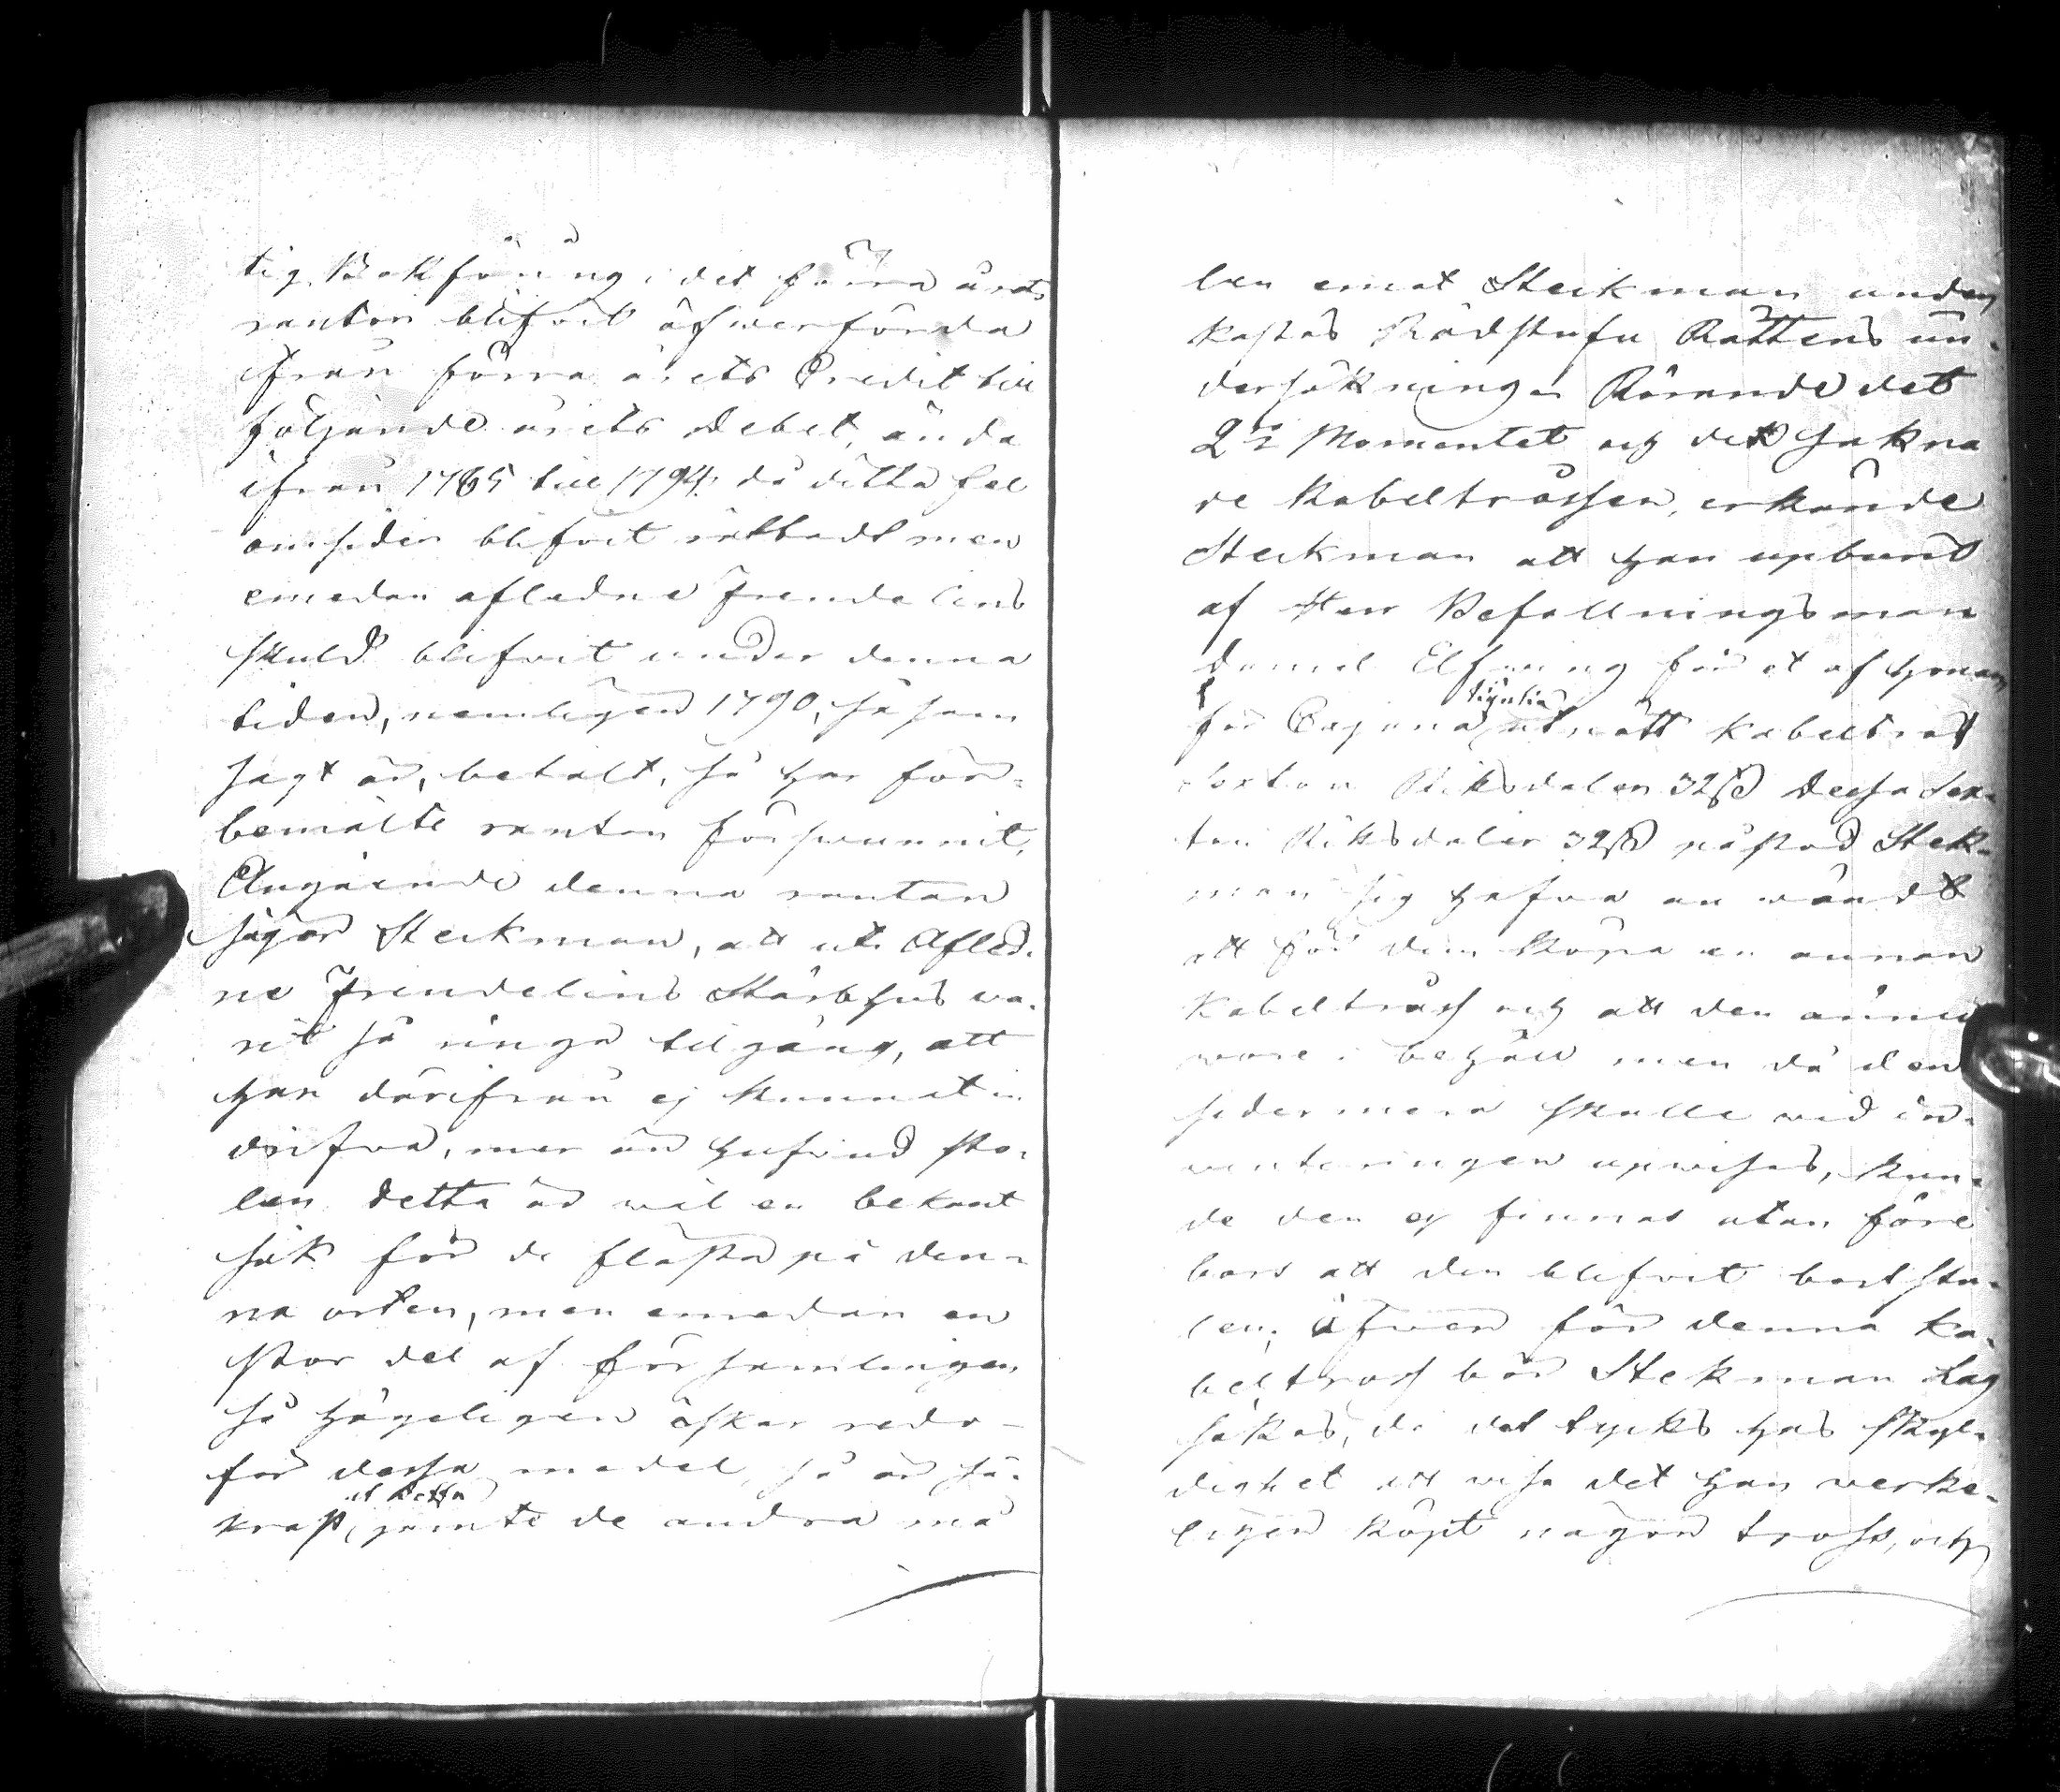 tig Bokföring, i det förra årets
räntor blifvit öfwerförda
ifrån förra årets Credit till
följande årets Debet, ända
ifrån 1785 till 1794. då detta fel
omsider blifvit rättadt men
emedan afledne Frendelins
skuld blifvit under denna
tiden, nemligen 1790, så som
sagt är, betalt, så har för-
bemälte räntan förswunnit.
Angående denna räntan
säger Steckman, att uti Afled-
ne Frendelins Stärbhus wa-
rit så ringa tilgång, att
han därifrån ej kunnat in
drifva, mer än hufwud sto-
len. Detta är wäl en bekant
sak för de flästa på den-
na orten, men emedan en
stor del af församlingen
så högeligen åskar redo
för dessa medel, så är sä-
krast, at detta jämte de andra må
len emot Steckman under
kastas Rådstufu Rättens un-
dersökning. Rörande det
2:a Momentet och det sakna
de Kabeltrossen, erkände
Steckman att han upburit
af Herr Befallningsman
Daniel Elfwing för et af honom
för Cajana utnött kabeltross
Sexton Riksdaler 32 ß Dessa Sex-
ton Riksdaler 32 ß påstod Stek-
man sig hafva anwändt
att för dem köpa en annan
Kabeltross och att den ännu
wore i behåll men då den
sedermera skulle wid in-
venteringen upwisas, kun-
de den ej finnas utan före
bars att den blifvit bortstu-
len; äfwen för denna ka-
beltross bör Stekman Lag
sökas, då det tycks has skyl-
dighet att wisa det han werke-
ligen köpt någon tross, och